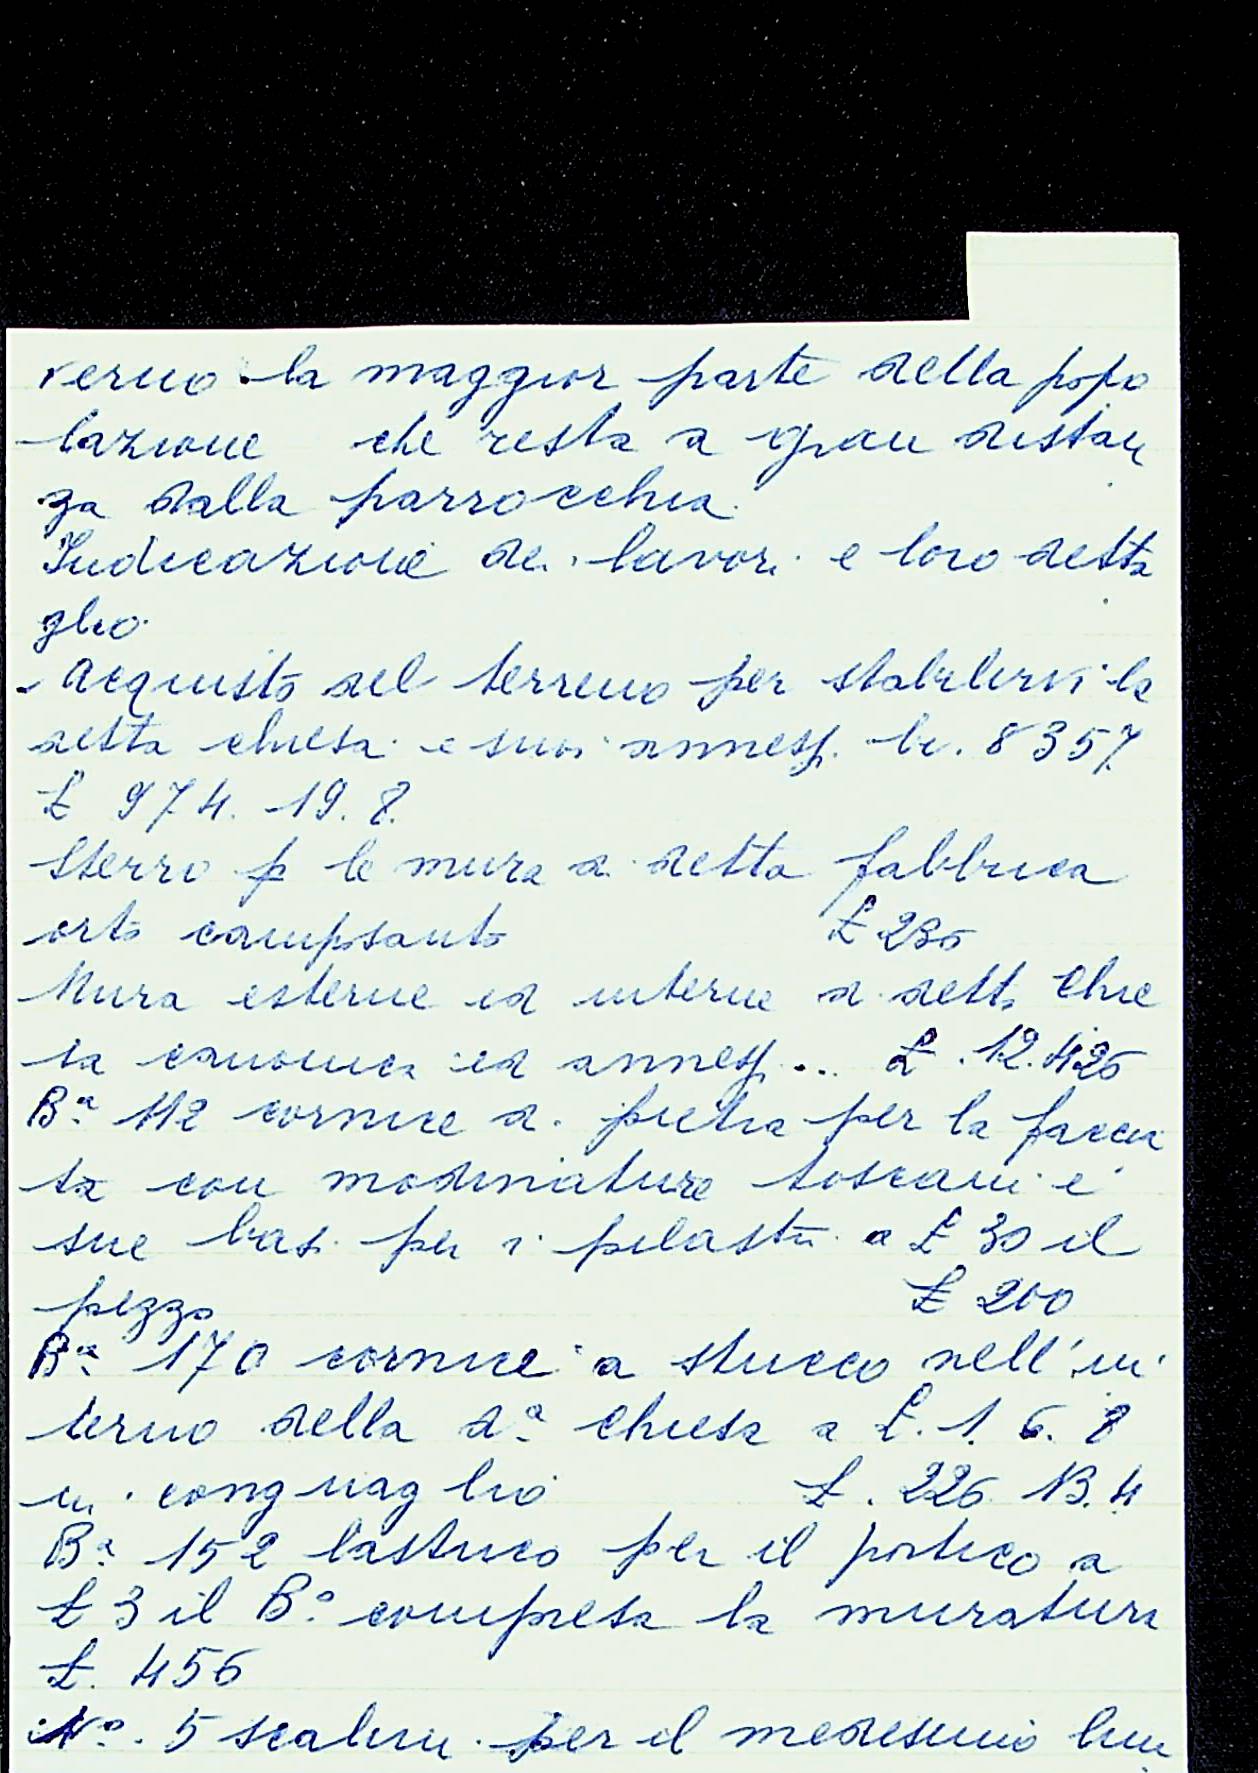 verno la maggior parte della popo
lazione che resta a gran distan
za dalla parrocchia.
Indicazione dei lavori e loro detta
glio.
- Acquisto del terreno per stabilirvi la
detta chiesa e suoi annessi br. 8357.
£ 974. 19. 8.
Sterro p le mura di detta fabbrica
orto camposanto £ 235
Mura esterne ed interne di detta Chie
sa canonica ed annessi... £. 12.425
Ba. 112 cornice di pietra per la faccia
ta con modinature toscani e
sue basi per i pilastri a £ 30 il
pezzo £ 200
Ba. 170 cornice a stucco nell'in
terno della da. Chiesa a £. 1. 6. 8
in conguaglio £. 226. 13. 4
Ba. 152 lastrico per il portico a
£ 3 il Bo. compresa la muratura
£. 456
No. 5 scalini per il medesimo lun